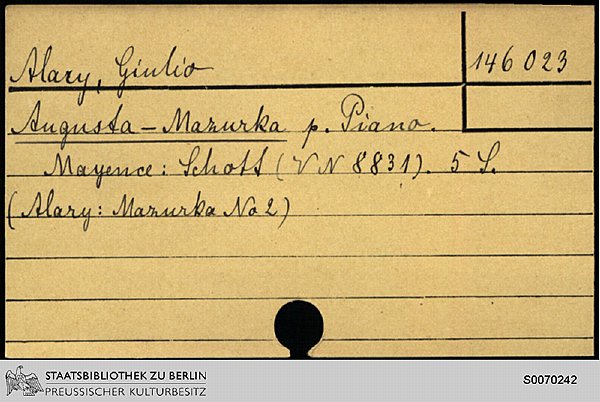 Alary, Giulio
146 023
Augusta - Mazurka p. Piano.
Mayence: Schott (VN 8831). 5 S.
(Alary: Mazurka No 2)
STAATSBIBLIOTHEK ZU BERLIN
PREUSSISCHER KULTURBESITZ
S0070242